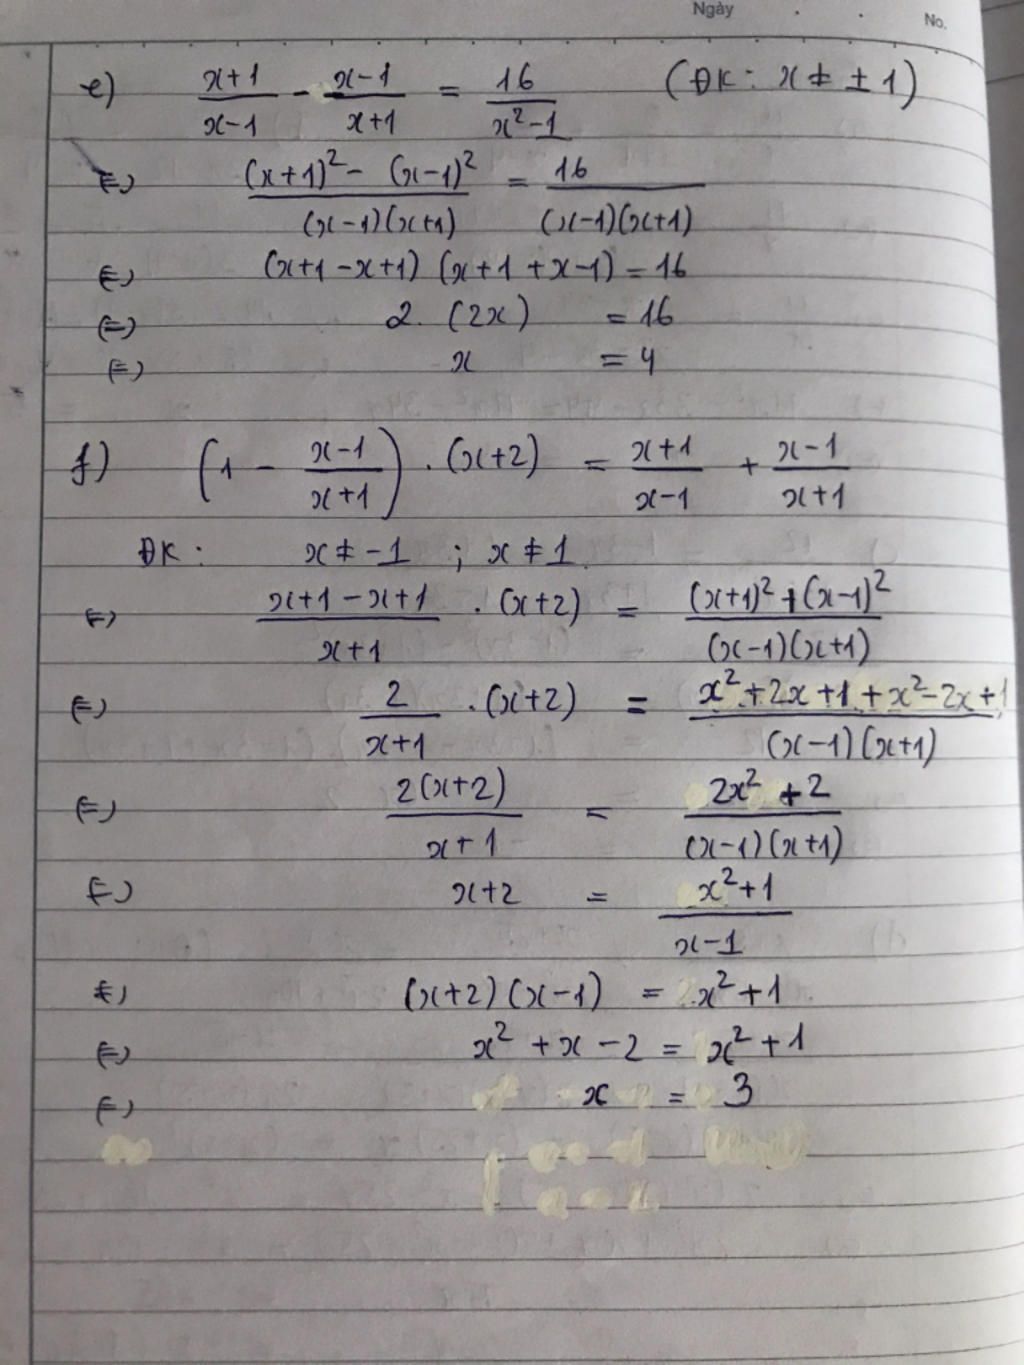 Ngày
No.
e) (x+1)/(x-1) - (x-1)/(x+1) = 16/(x²-1) (ĐK: x ≠ ±1)
⇔ ((x+1)² - (x-1)²)/((x-1)(x+1)) = 16/((x-1)(x+1))
⇔ (x+1-x+1)(x+1+x-1) = 16
⇔ 2.(2x) = 16
⇔ x = 4
f) (1 - (x-1)/(x+1)) . (x+2) = (x+1)/(x-1) + (x-1)/(x+1)
ĐK: x ≠ -1 ; x ≠ 1
⇔ (x+1-x+1)/(x+1) . (x+2) = ((x+1)² + (x-1)²)/((x-1)(x+1))
⇔ 2/(x+1) . (x+2) = (x²+2x+1+x²-2x+1)/((x-1)(x+1))
⇔ 2(x+2)/(x+1) = (2x²+2)/((x-1)(x+1))
⇔ x+2 = (x²+1)/(x-1)
⇔ (x+2)(x-1) = x²+1
⇔ x²+x-2 = x²+1
⇔ x = 3